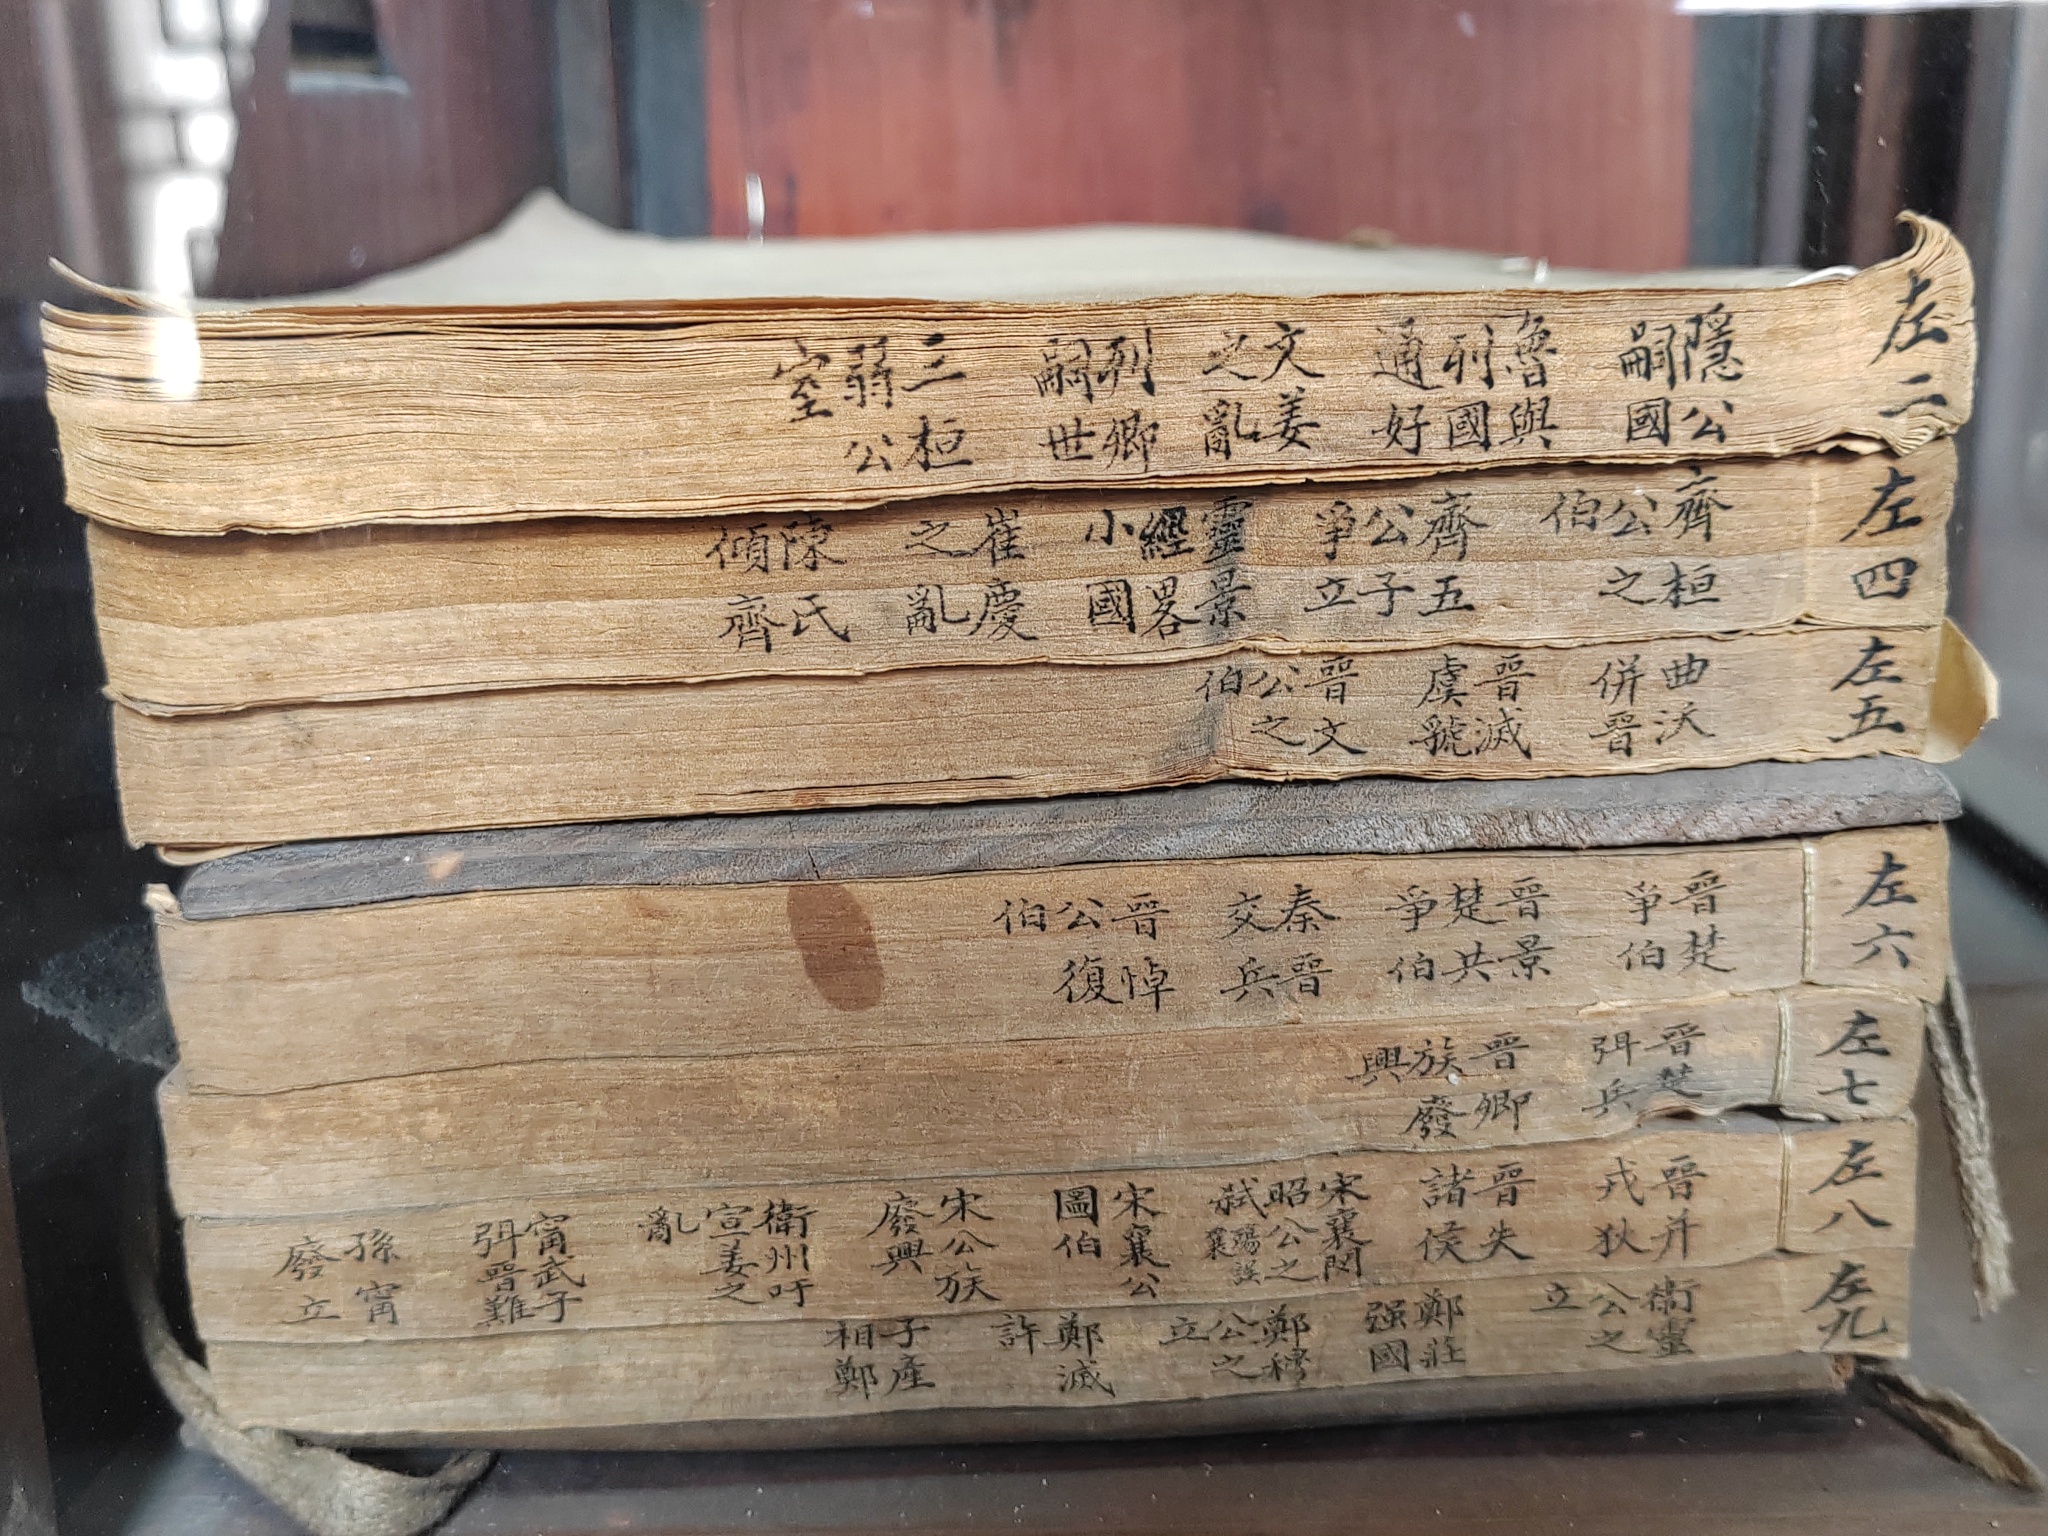 左二
隱公嗣國
魯與列國通好
文姜之亂
列卿嗣世
三桓弱公室
左四
齊桓公之伯
齊五公子爭立
靈景經畧小國
崔慶之亂
陳氏傾齊
左五
曲沃併晉
晉滅虞虢
晉文公之伯
左六
晉楚爭伯
晉景楚共爭伯
秦晉交兵
晉悼公復伯
左七
晉楚弭兵
晉卿族廢興
左八
晉并戎狄
晉失諸侯
宋襄閔昭公之弑
宋襄公圖伯
宋公族廢興
衛州吁宣姜之亂
甯武子弭晉難
孫甯廢立
左九
衛靈公之立
鄭莊强國
鄭穆公之立
鄭滅許
子產相鄭